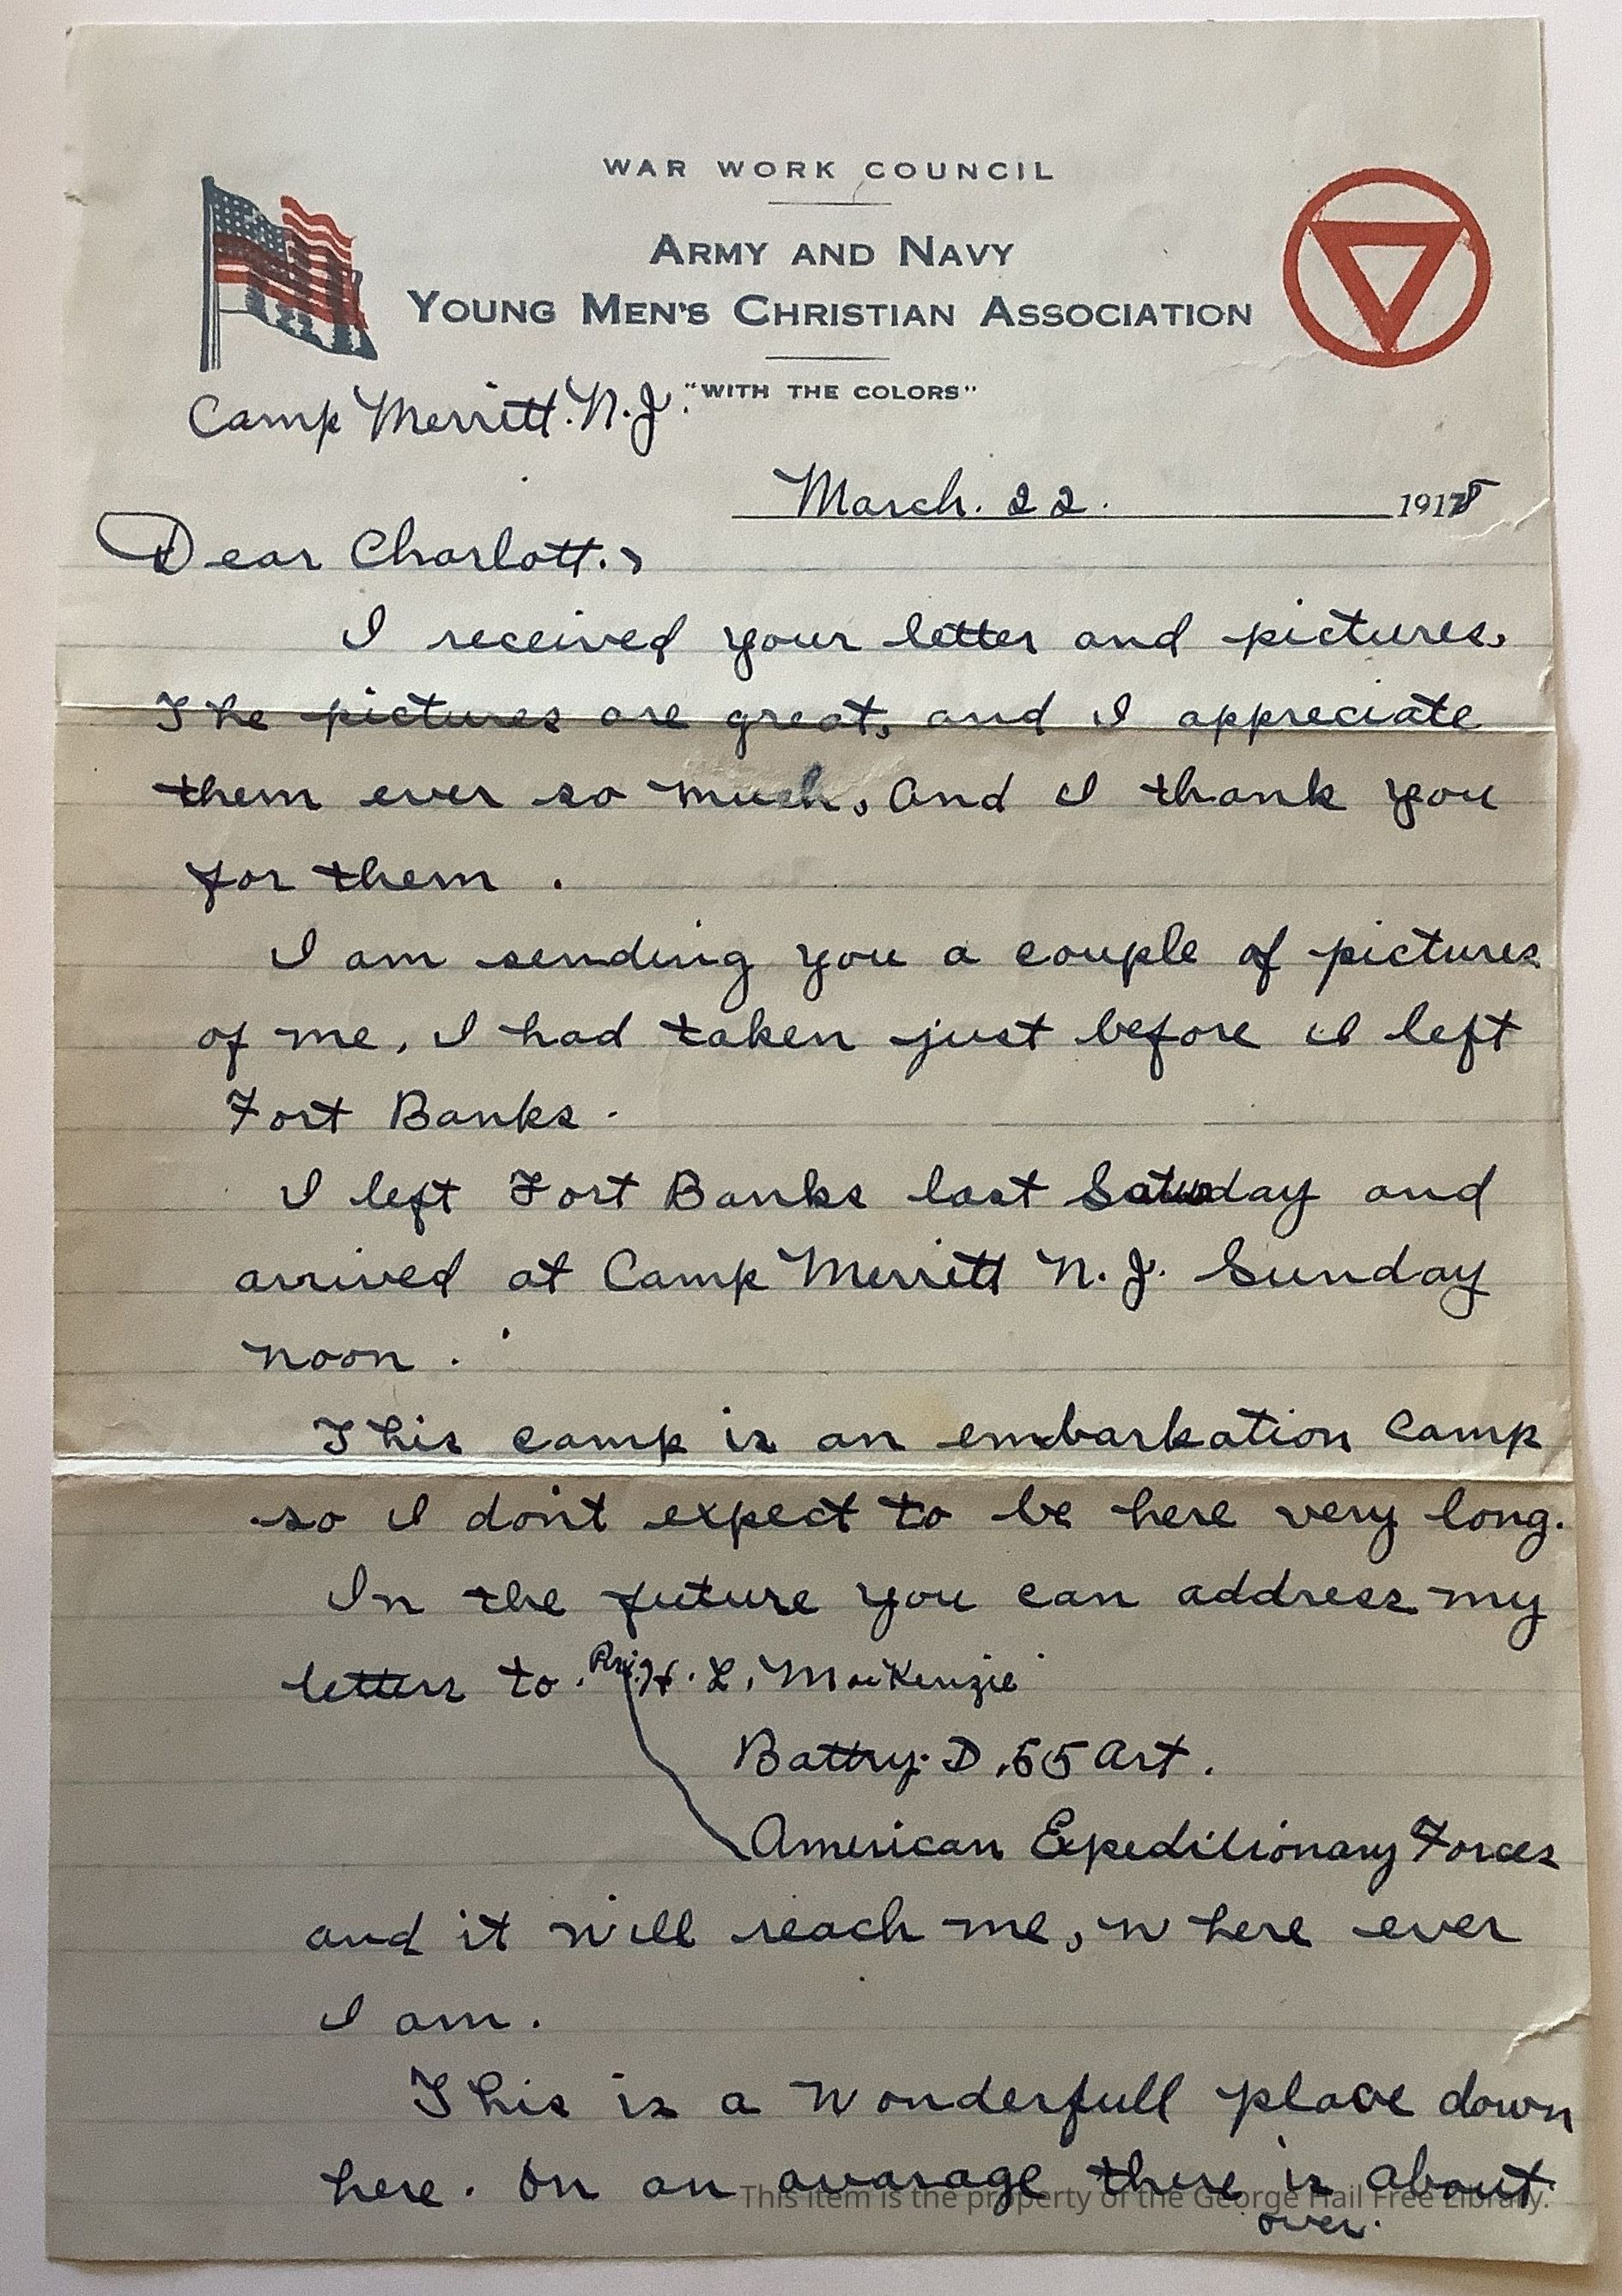 WAR WORK COUNCIL
ARMY AND NAVY
YOUNG MEN'S CHRISTIAN ASSOCIATION
"WITH THE COLORS"
Camp Merritt. N.J.
March. 22. 1918
Dear Charlott.,
I received your letter and pictures,
The pictures are great, and I appreciate
them ever so much, And I thank you
for them .
I am sending you a couple of pictures
of me, I had taken just before I left
Fort Banks.
I left Fort Banks last Saturday and
arrived at Camp Merritt N.J. Sunday
noon .
This camp is an embarkation Camp
so I don't expect to be here very long.
In the future you can address my
letters to . Pri. H. L. MacKenzie
Battry. D .55 Art .
American Expeditionary Forces
and it will reach me, where ever
I am .
This is a wonderfull place down
here. On an avarage there is about
over.
This item is the property of the George Hail Free Library.